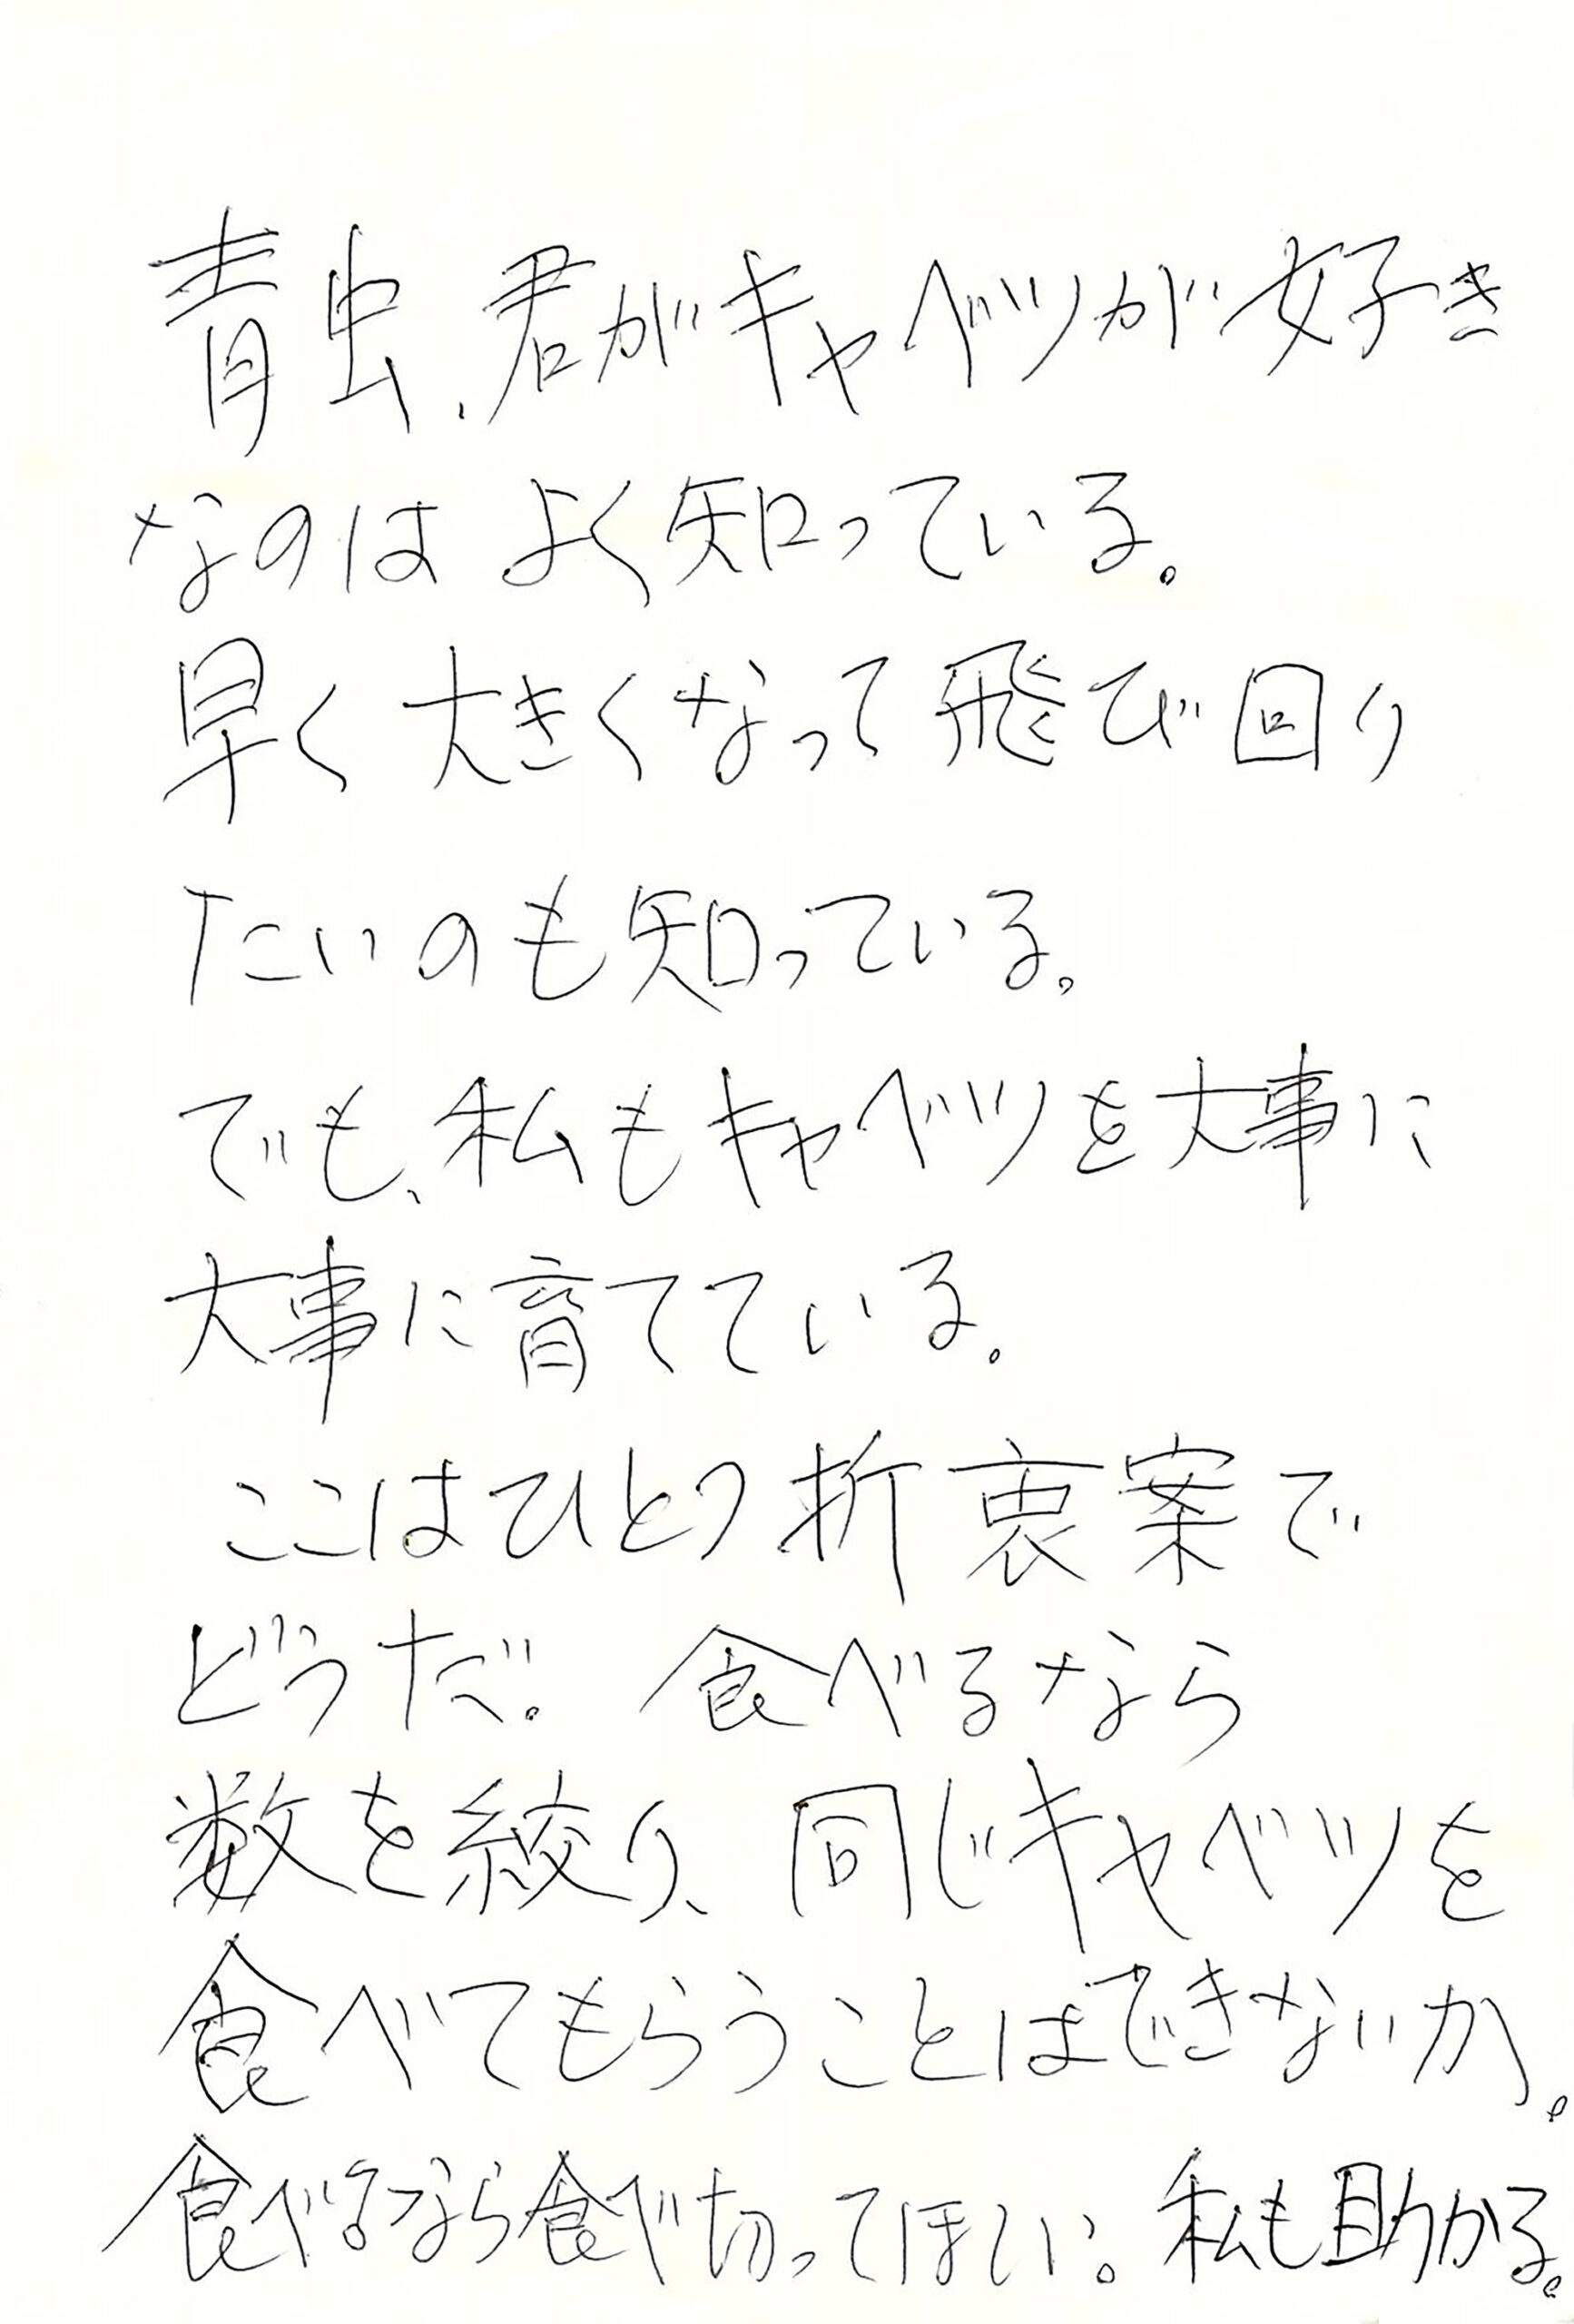 青虫、君がキャベツが好き
なのはよく知っている。
早く大きくなって飛び回り
たいのも知っている。
でも、私もキャベツを大事に
大事に育てている。
ここはひとつ折衷案で
どうだ。食べるなら
数を絞り、同じキャベツを
食べてもらうことはできないか。
食べるなら食べ切ってほしい。私も助かる。